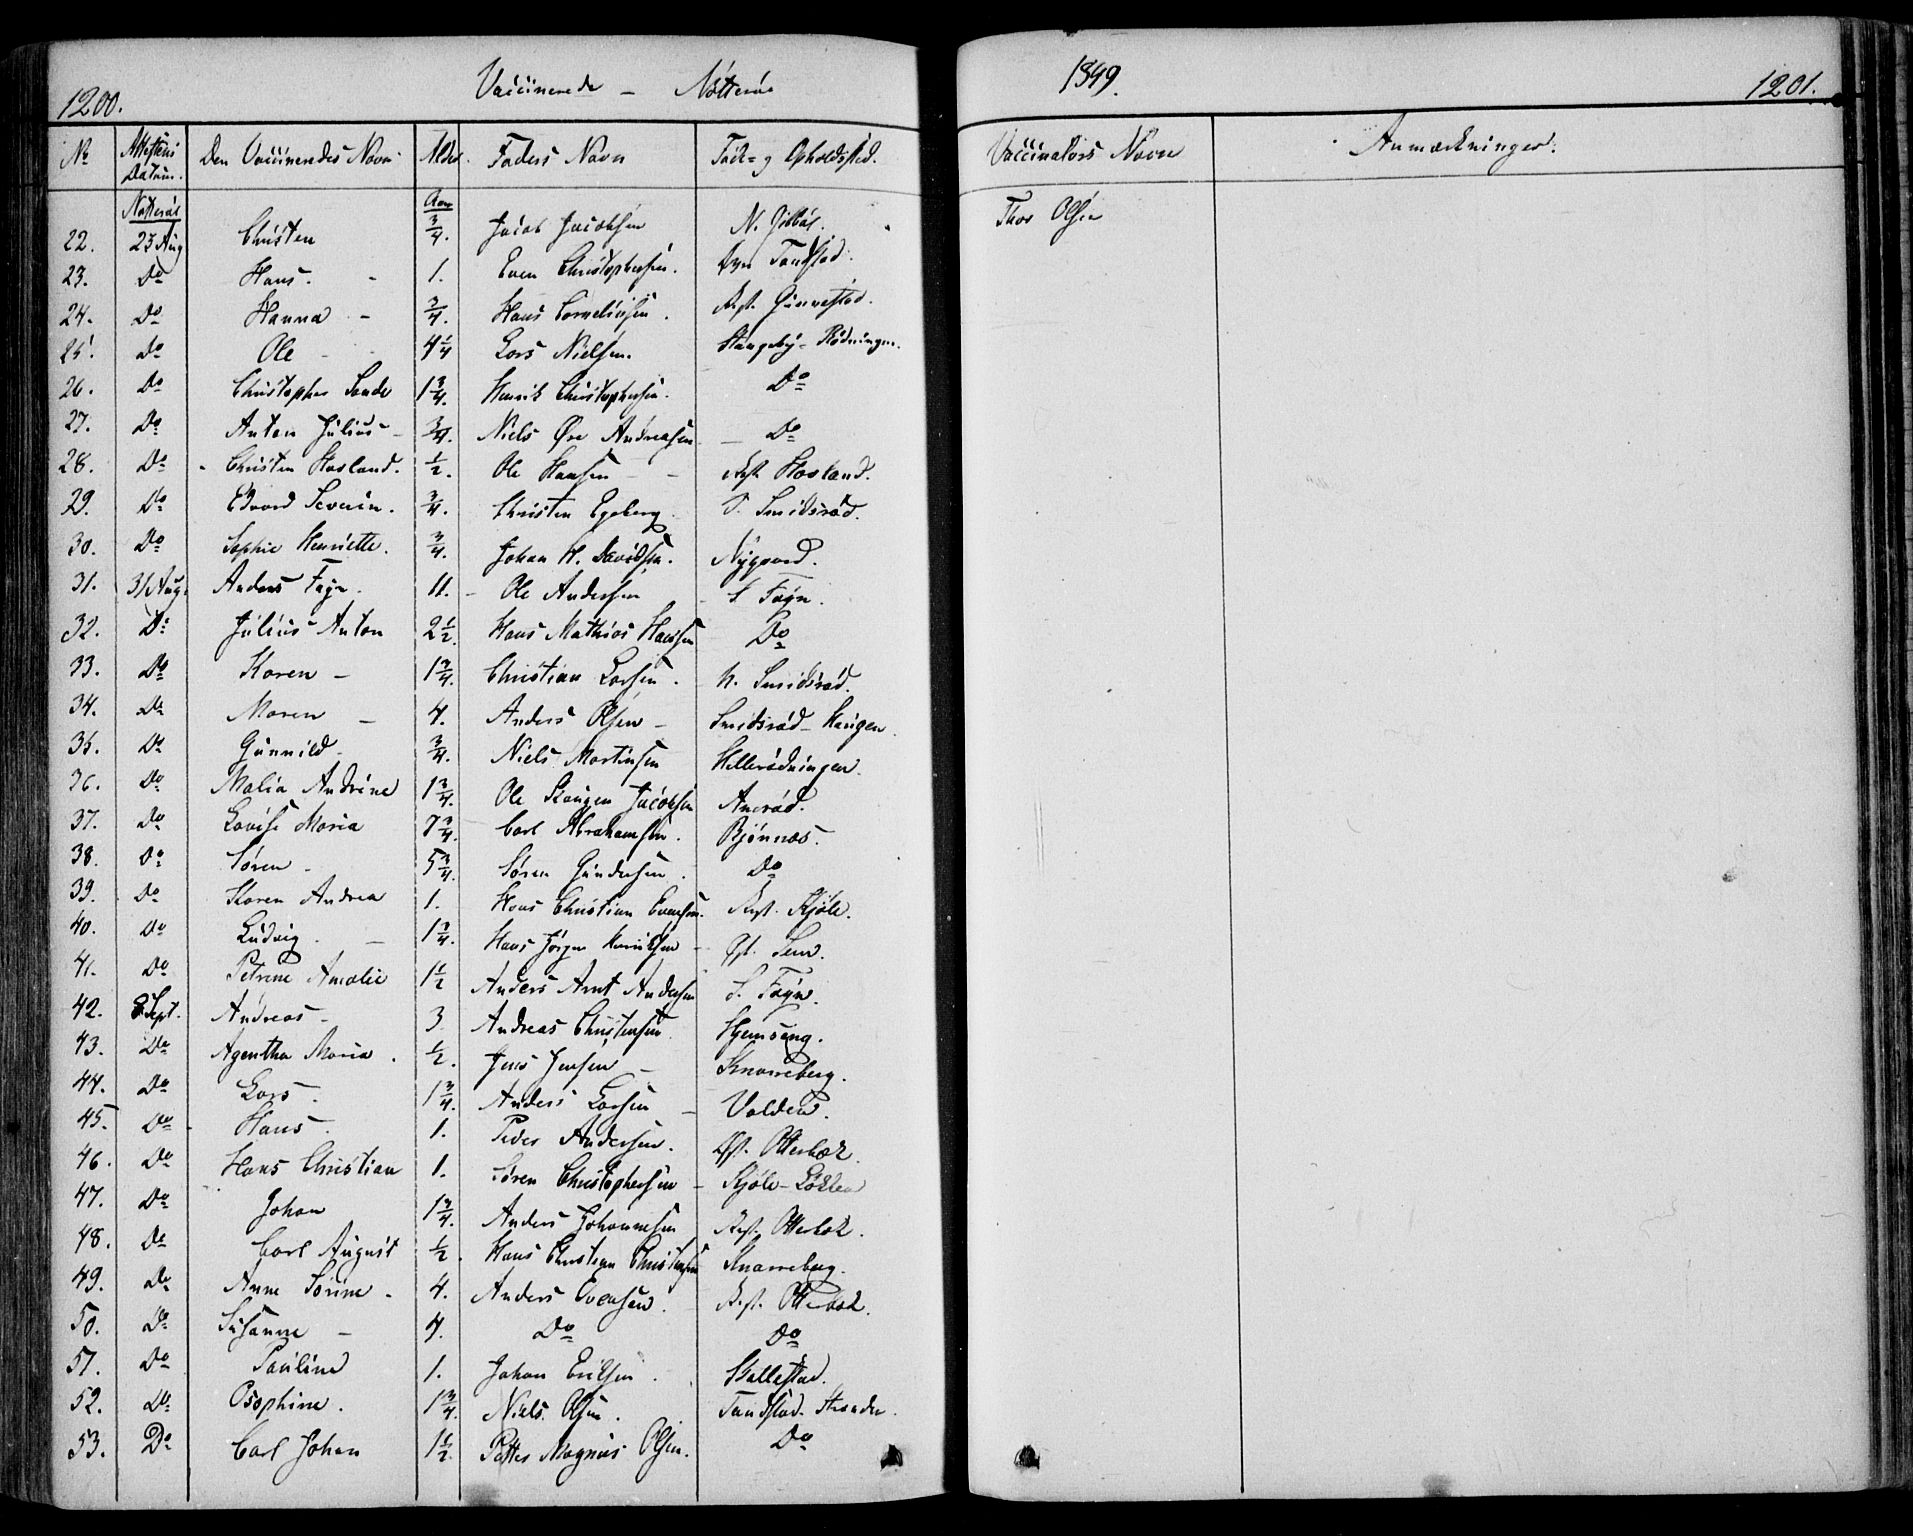 1200.
Vaccinerede – Nötteröe
1849.
1201.
No Attestens Datum. Den Vaccineredes Navn Alder. Faders Navn Föde- og Opholdsted. Vaccinators Navn Anmærkninger.
Nötteröe Aar
22. 23 Aug Christen 3/4. Jacob Jacobsen N. Thor Olsen
23. Do Hans. 1. Even Christophersen.
24. Do Hanna – 3/4. Hans Corneliusen. Gunnestad.
25. Do Ole – 4 1/4 Lars Nielsen. Stangeby-Rödningen.
26. Do Christopher 1 3/4. Henrik Christophersen. Do
27. Do Anton Julius – 3/4. Niels Øre Andreasen – Do
28. Do Christen Hasland. 1/2. Ole Hansen – Hasland.
29. Do Edvard Severin. 3/4. Christen Egeberg S. Smidsröd.
30. Do Sophie Henriette. 3/4. Johan H. Davidsen. Nÿgaard.
31. 31 Aug. Anders Fayn. 11. – Ole Andersen – S. Fayn.
32. Do Julius Anton 2 1/2. Hans Mathias Hansen Do
33. Do Karen – 1 3/4. Christian Larsen. N. Smidsröd.
34. Do Maren – 4. Anders Olsen – Smidsröd-Haugen.
35. Do Gunnild – 3/4. Niels Martinsen Hellerödningen.
36. Do Malia Andrine 1 3/4. Ole Skaugen Jacobsen Aaröd.
37. Do Lovise Maria 7 3/4. Carl Abrahamsen. Bjönnæs.
38. Do Sören – 5 3/4. Sören Gundersen. Do
39. Do Karen Andrea 1. Hans Christian Evensen. Kjöle.
40. Do Ludvig. – 1 3/4. Hans Jörgen Henriksen – Sem.
41. Do Petrine Amalie 1 1/2 Anders Arnt Andersen S. Fayn.
42. 8 Sept. Andreas – 3. Andreas Christensen Hjemseng.
43. Do Agentha Maria. 1/2. Jens Jensen – Knarreberg.
44. Do Lars – 1 3/4. Anders Larsen – Volden.
45. Do Hans. 1. Peder Andersen. Otterbæk.
46. Do Hans Christian 1. Sören Christophersen – Kjöle-Lökken
47. Do Johan 1 3/4. Anders Johannesen Otterbæk.
48. Do Carl August 1/2. Hans Christian Christensen Knarreberg.
49. Do Anne Sörine – 4. Anders Evensen. – Otterbæk.
50. Do Susanne – 4. Do Do
51. Do Pauline 1. Johan Eriksen. Skallestad.
52. Do Osophine. 1 3/4. Niels Olsen. Tandstad-Stranden.
53. Do Carl Johan 1 1/2. Petter Magnus Olsen. Do